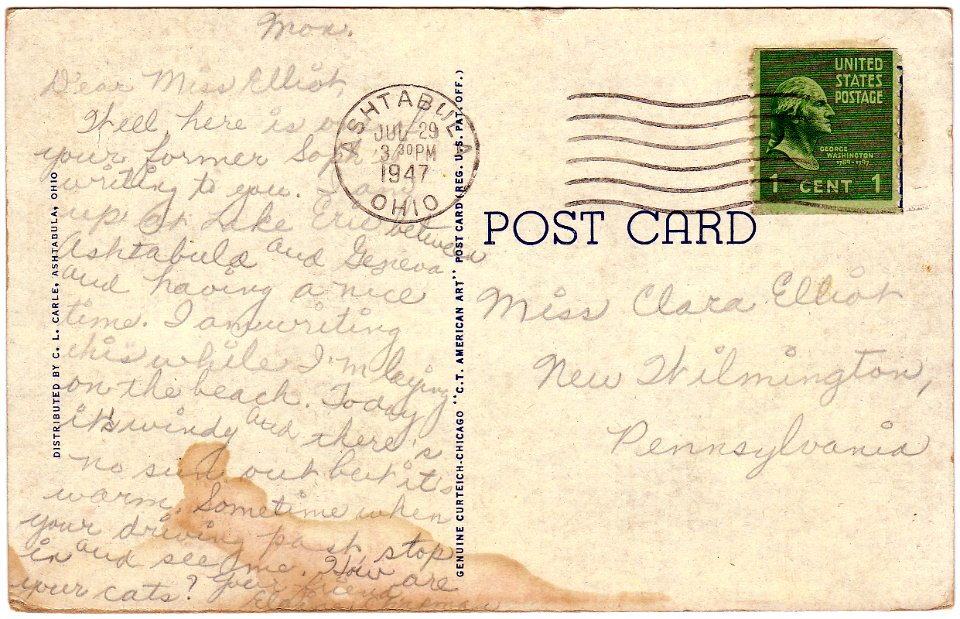 Mon.
Dear Miss Elliot,
Well, here is
your former Soph
writing to you. I am
up at Lake Erie between
Ashtabula and Geneva
and having a nice
time. I am writing
this while I'm laying
on the beach. Today
it's windy and there's
no sun out but it's
warm. Sometime when
your driving past stop
in and see me. How are
your cats? Your friend
DISTRIBUTED BY C. L. CARLE, ASHTABULA, OHIO
GENUINE CURTEICH-CHICAGO "C.T. AMERICAN ART" POST CARD (REG. U.S. PAT. OFF.)
ASHTABULA
JUL 29
3 30 PM
1947
OHIO
UNITED
STATES
POSTAGE
GEORGE
WASHINGTON
1789-1797
1 CENT 1
POST CARD
Miss Clara Elliot
New Wilmington,
Pennsylvania